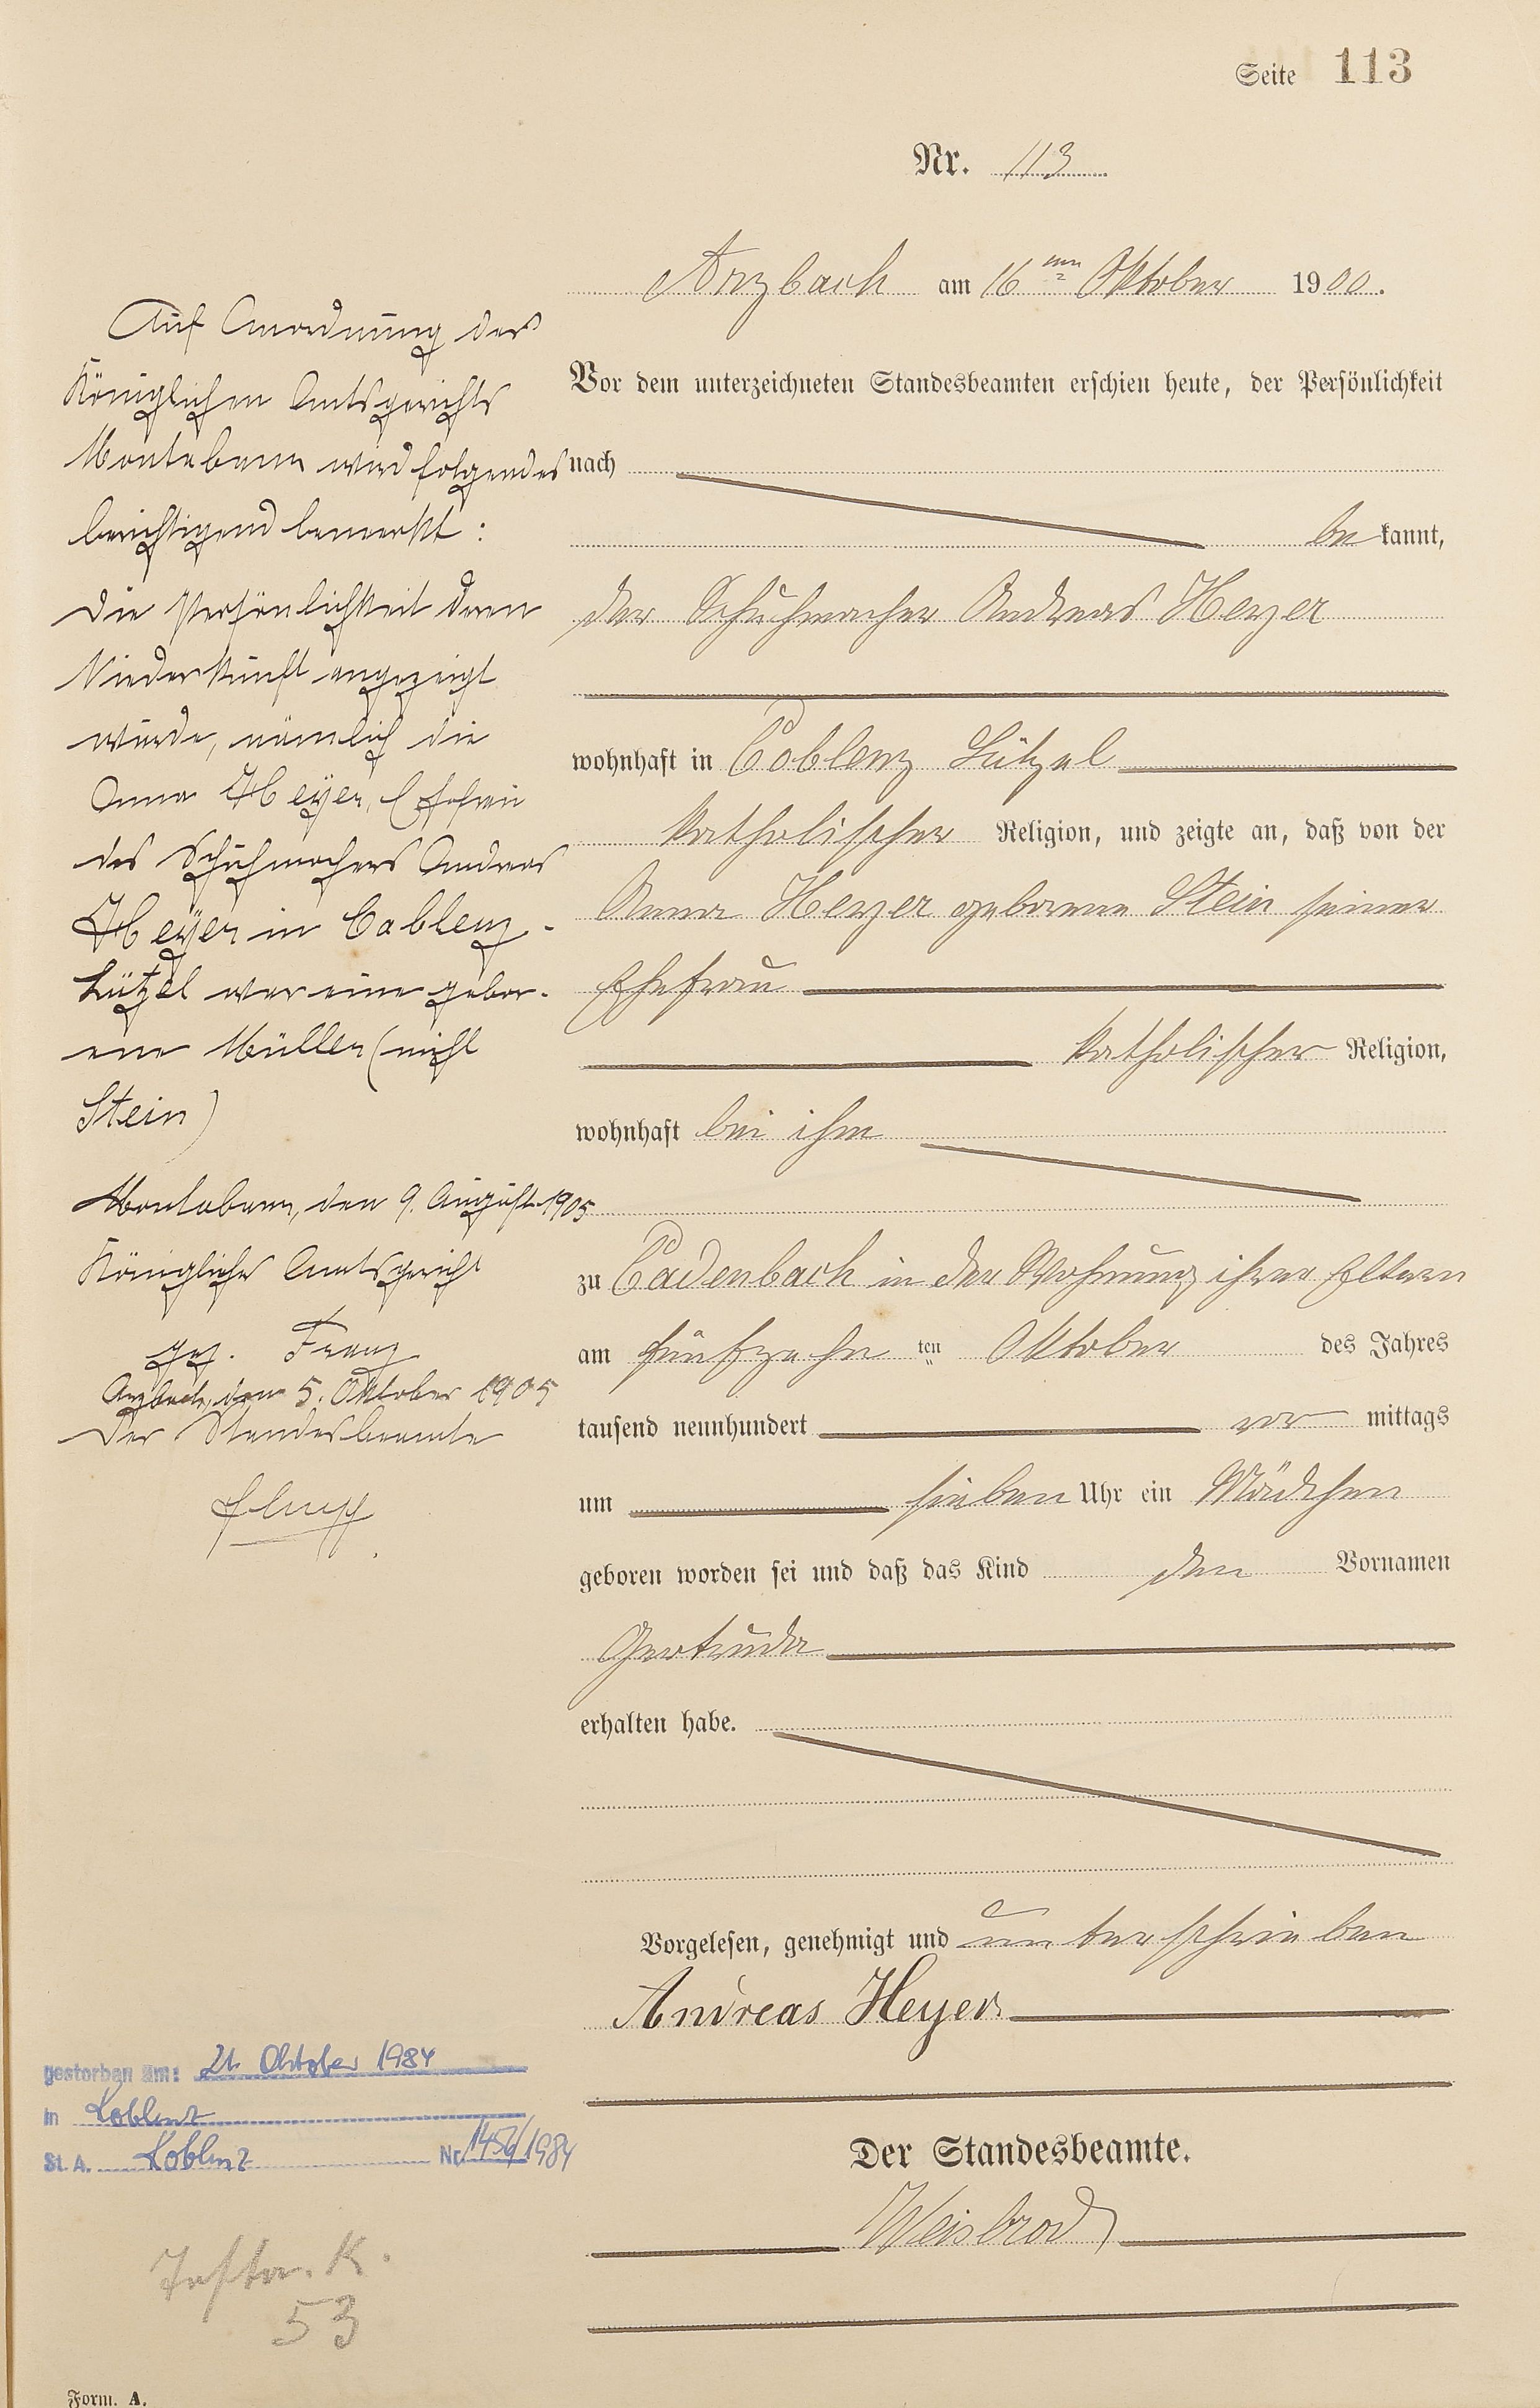 Seite 113
Nr. 113
Arzbach am 16ten Oktober 1900.
Vor dem unterzeichneten Standesbeamten erschien heute, der Persönlichkeit
nach
be kannt,
der Schuhmacher Andreas Heyer
wohnhaft in Coblenz Lützel
katholischer Religion, und zeigte an, daß von der
Anna Heyer geborene Stein seiner
Ehefrau
katholischer Religion,
wohnhaft bei ihm
zu Cadenbach in der Wohnung ihrer Eltern
am fünfzehn ten Oktober des Jahres
tausend neunhundert vor mittags
um sieben Uhr ein Mädchen
geboren worden sei und daß das Kind den Vornamen
Gertruda
erhalten habe.
Vorgelesen, genehmigt und unterschrieben
Andreas Heyer
Der Standesbeamte.
Weisbrod
Auf Anordnung des
Königlichen Amtsgerichts
Montabaur wird folgendes
berichtigend bemerkt:
Die Persönlichkeit deren
Niederkunft angezeigt
wurde, nämlich die
Anna Heyer, Ehefrau
des Schuhmachers Andreas
Heyer in Coblenz-
Lützel war eine gebor-
ene Müller (nicht
Stein)
Montabaur, den 9. August 1905
Königliches Amtsgericht
gez. Franz
Arzbach, den 5. Oktober 1905
Der Standesbeamte
gestorben am: 21. Oktober 1984
in Koblenz
St. A. Koblenz Nr. 1456/1984
K.
53
Form. A.